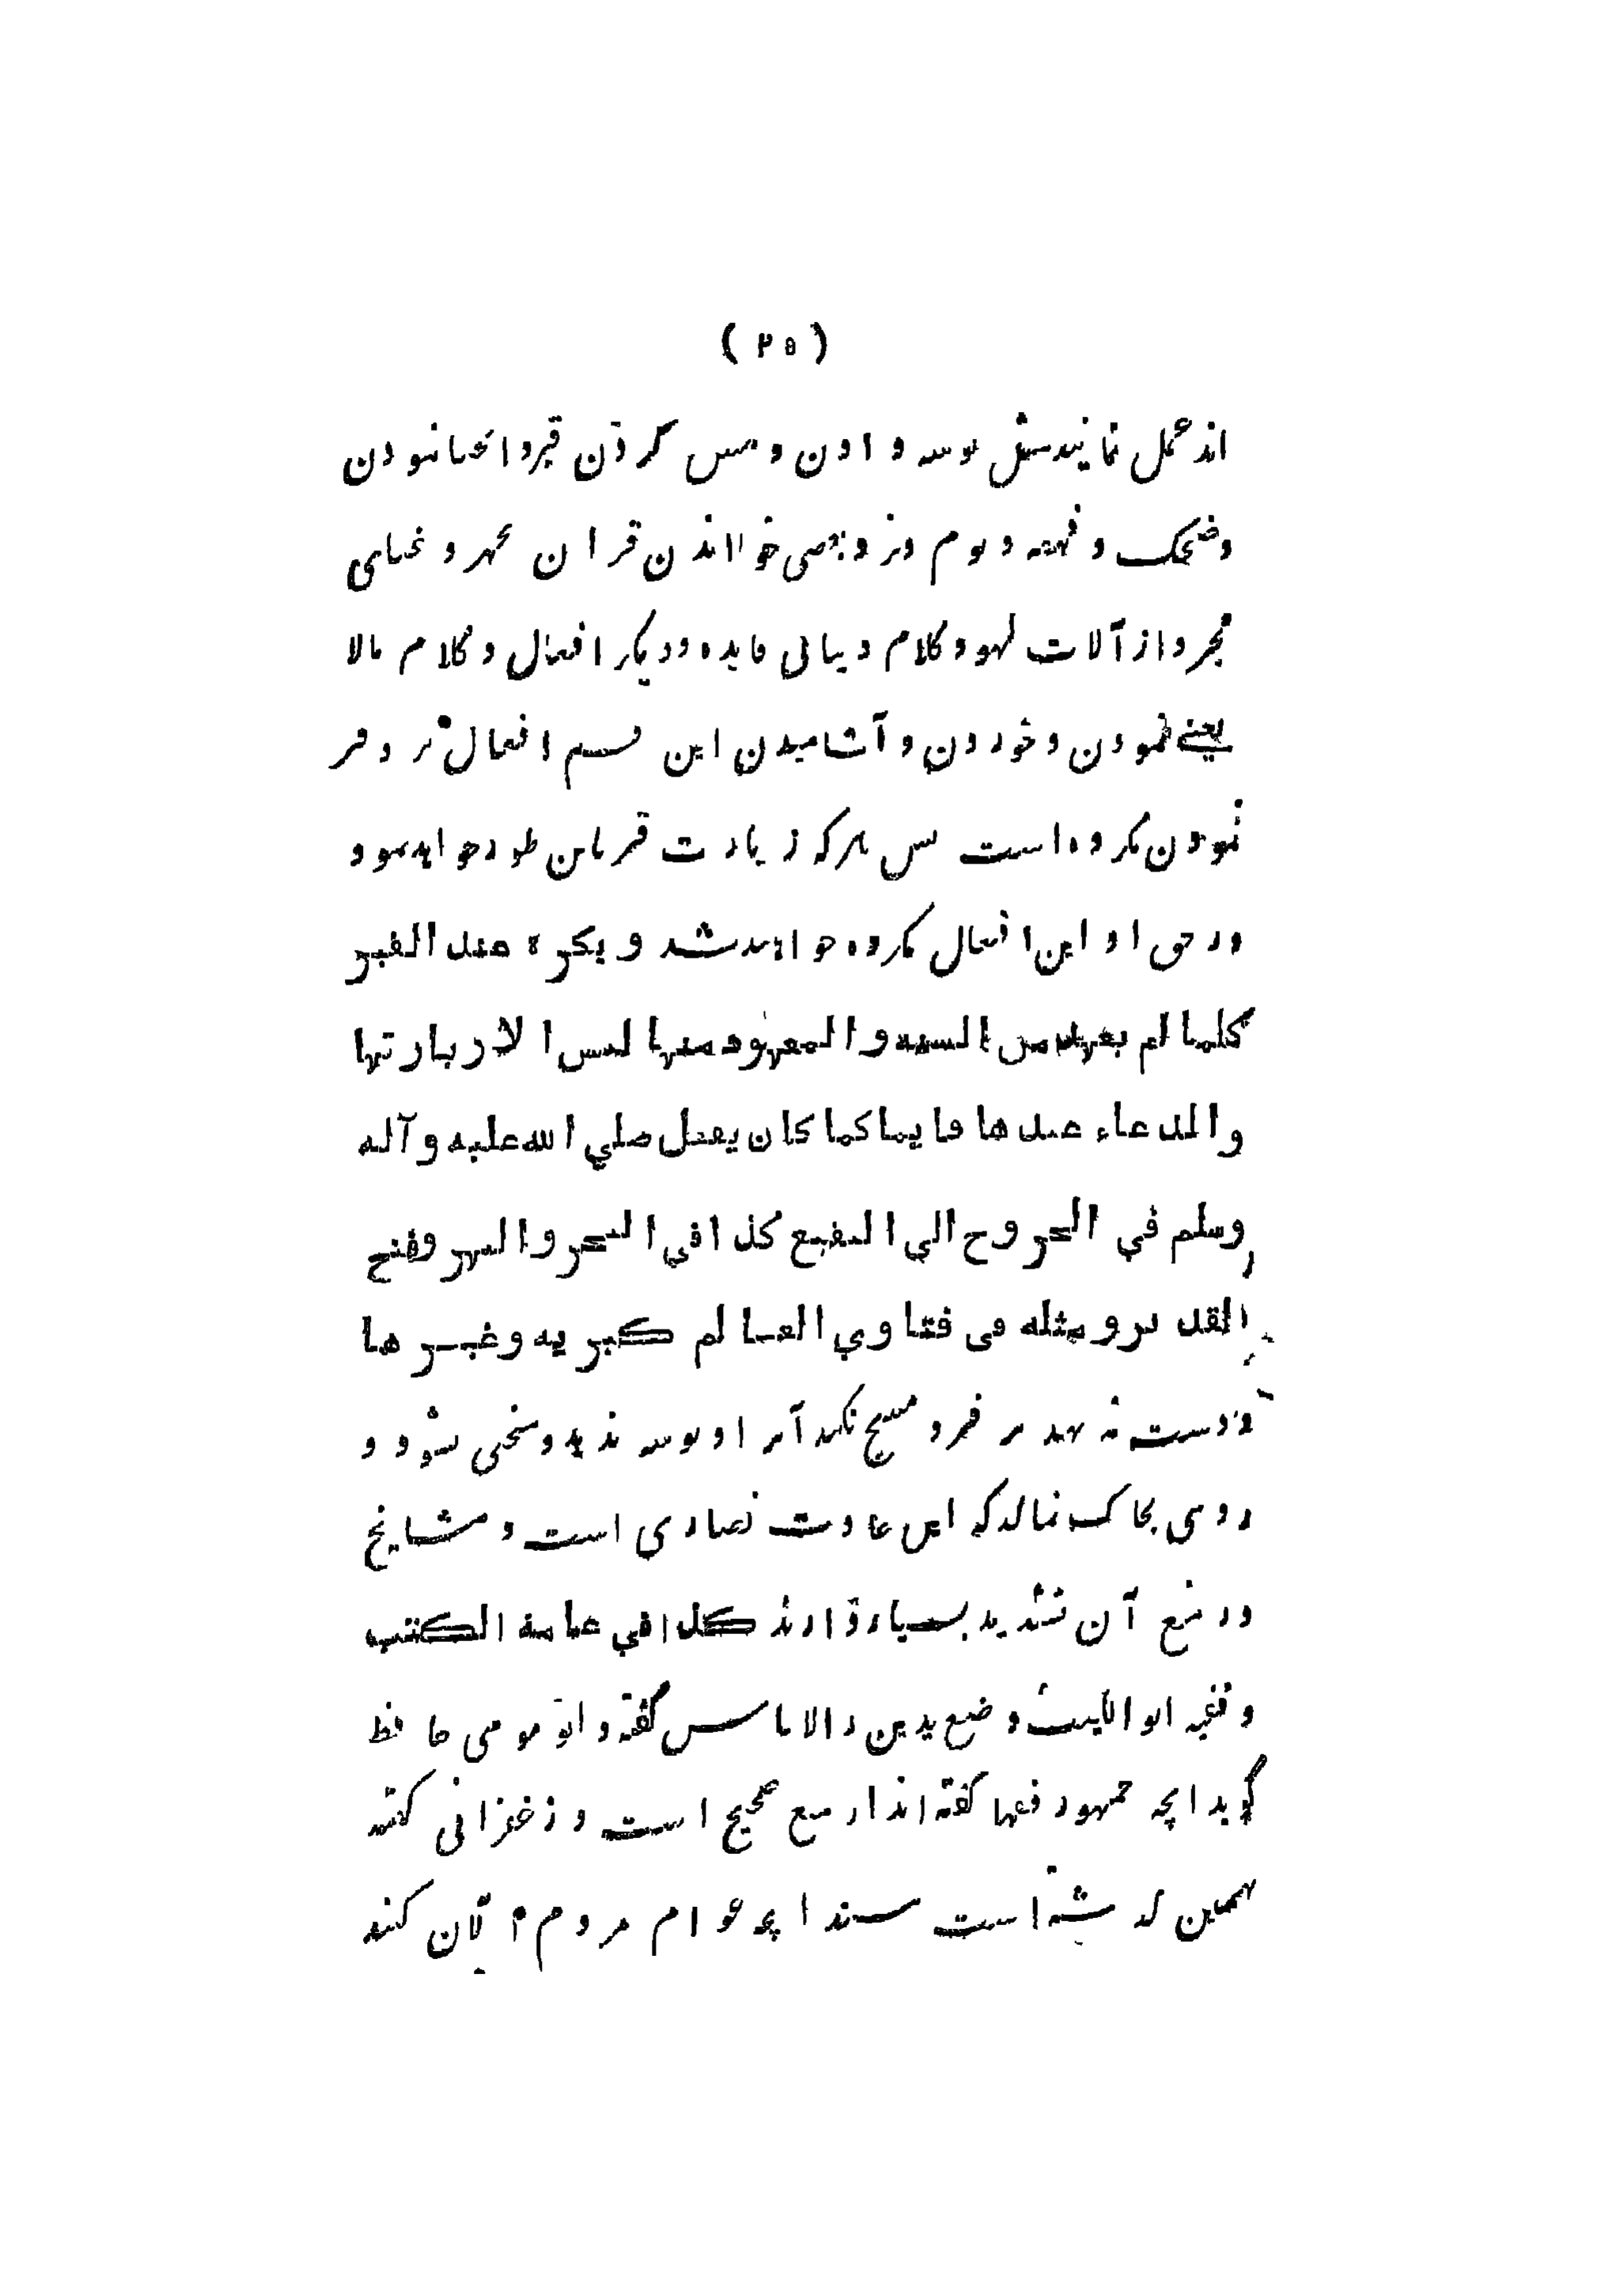 ( ٢٥ )
اند عمل نمایند مثل بوسه دادن و مس کردن قبر و انحنا نمودن
وضحک و قهقهه و نوم و نزد بعضی خواندن قران بجهر و غنای
مجرد از آلات لهو و کلام دنیا بی فایده و دیگر افعال و کلام مالا
یعنے نمودن و خوردن و آشامیدن این قسم افعال نزد قبر
نمودن مکروه است پس هرکه زیارت قبر باین طور خواهد نمود
در حق او این افعال مکروه خواهند شد ویکره عند القبر
کلما لم یعهد من السنه والمعهود منها لیس الا زیارتها
والدعاء عندها قایما کما کان یفعل صلي الله علیه وآله
وسلم في الخروج الي البقیع کذا في البحر والنهر وفتح
القدیر ومثله في فتاوي العالمکیریه وغیرها
و دست نه نهد بر قبر و مسح نکند آنرا و بوسه ندهد و منحنی نشود و
روی بخاک نمالد که این عادت نصاری است و مشایخ
در منع آن تشدید بسیار دارند کذا في عامة الکتب
و فقیه ابو اللیث وضع یدین را لا باس گفته و ابو موسی حافظ
گوید انچه جمهور فقها گفته اند از منع صحیح است و زعفرانی گفته
همین است انچه عوام مردم الان کنند